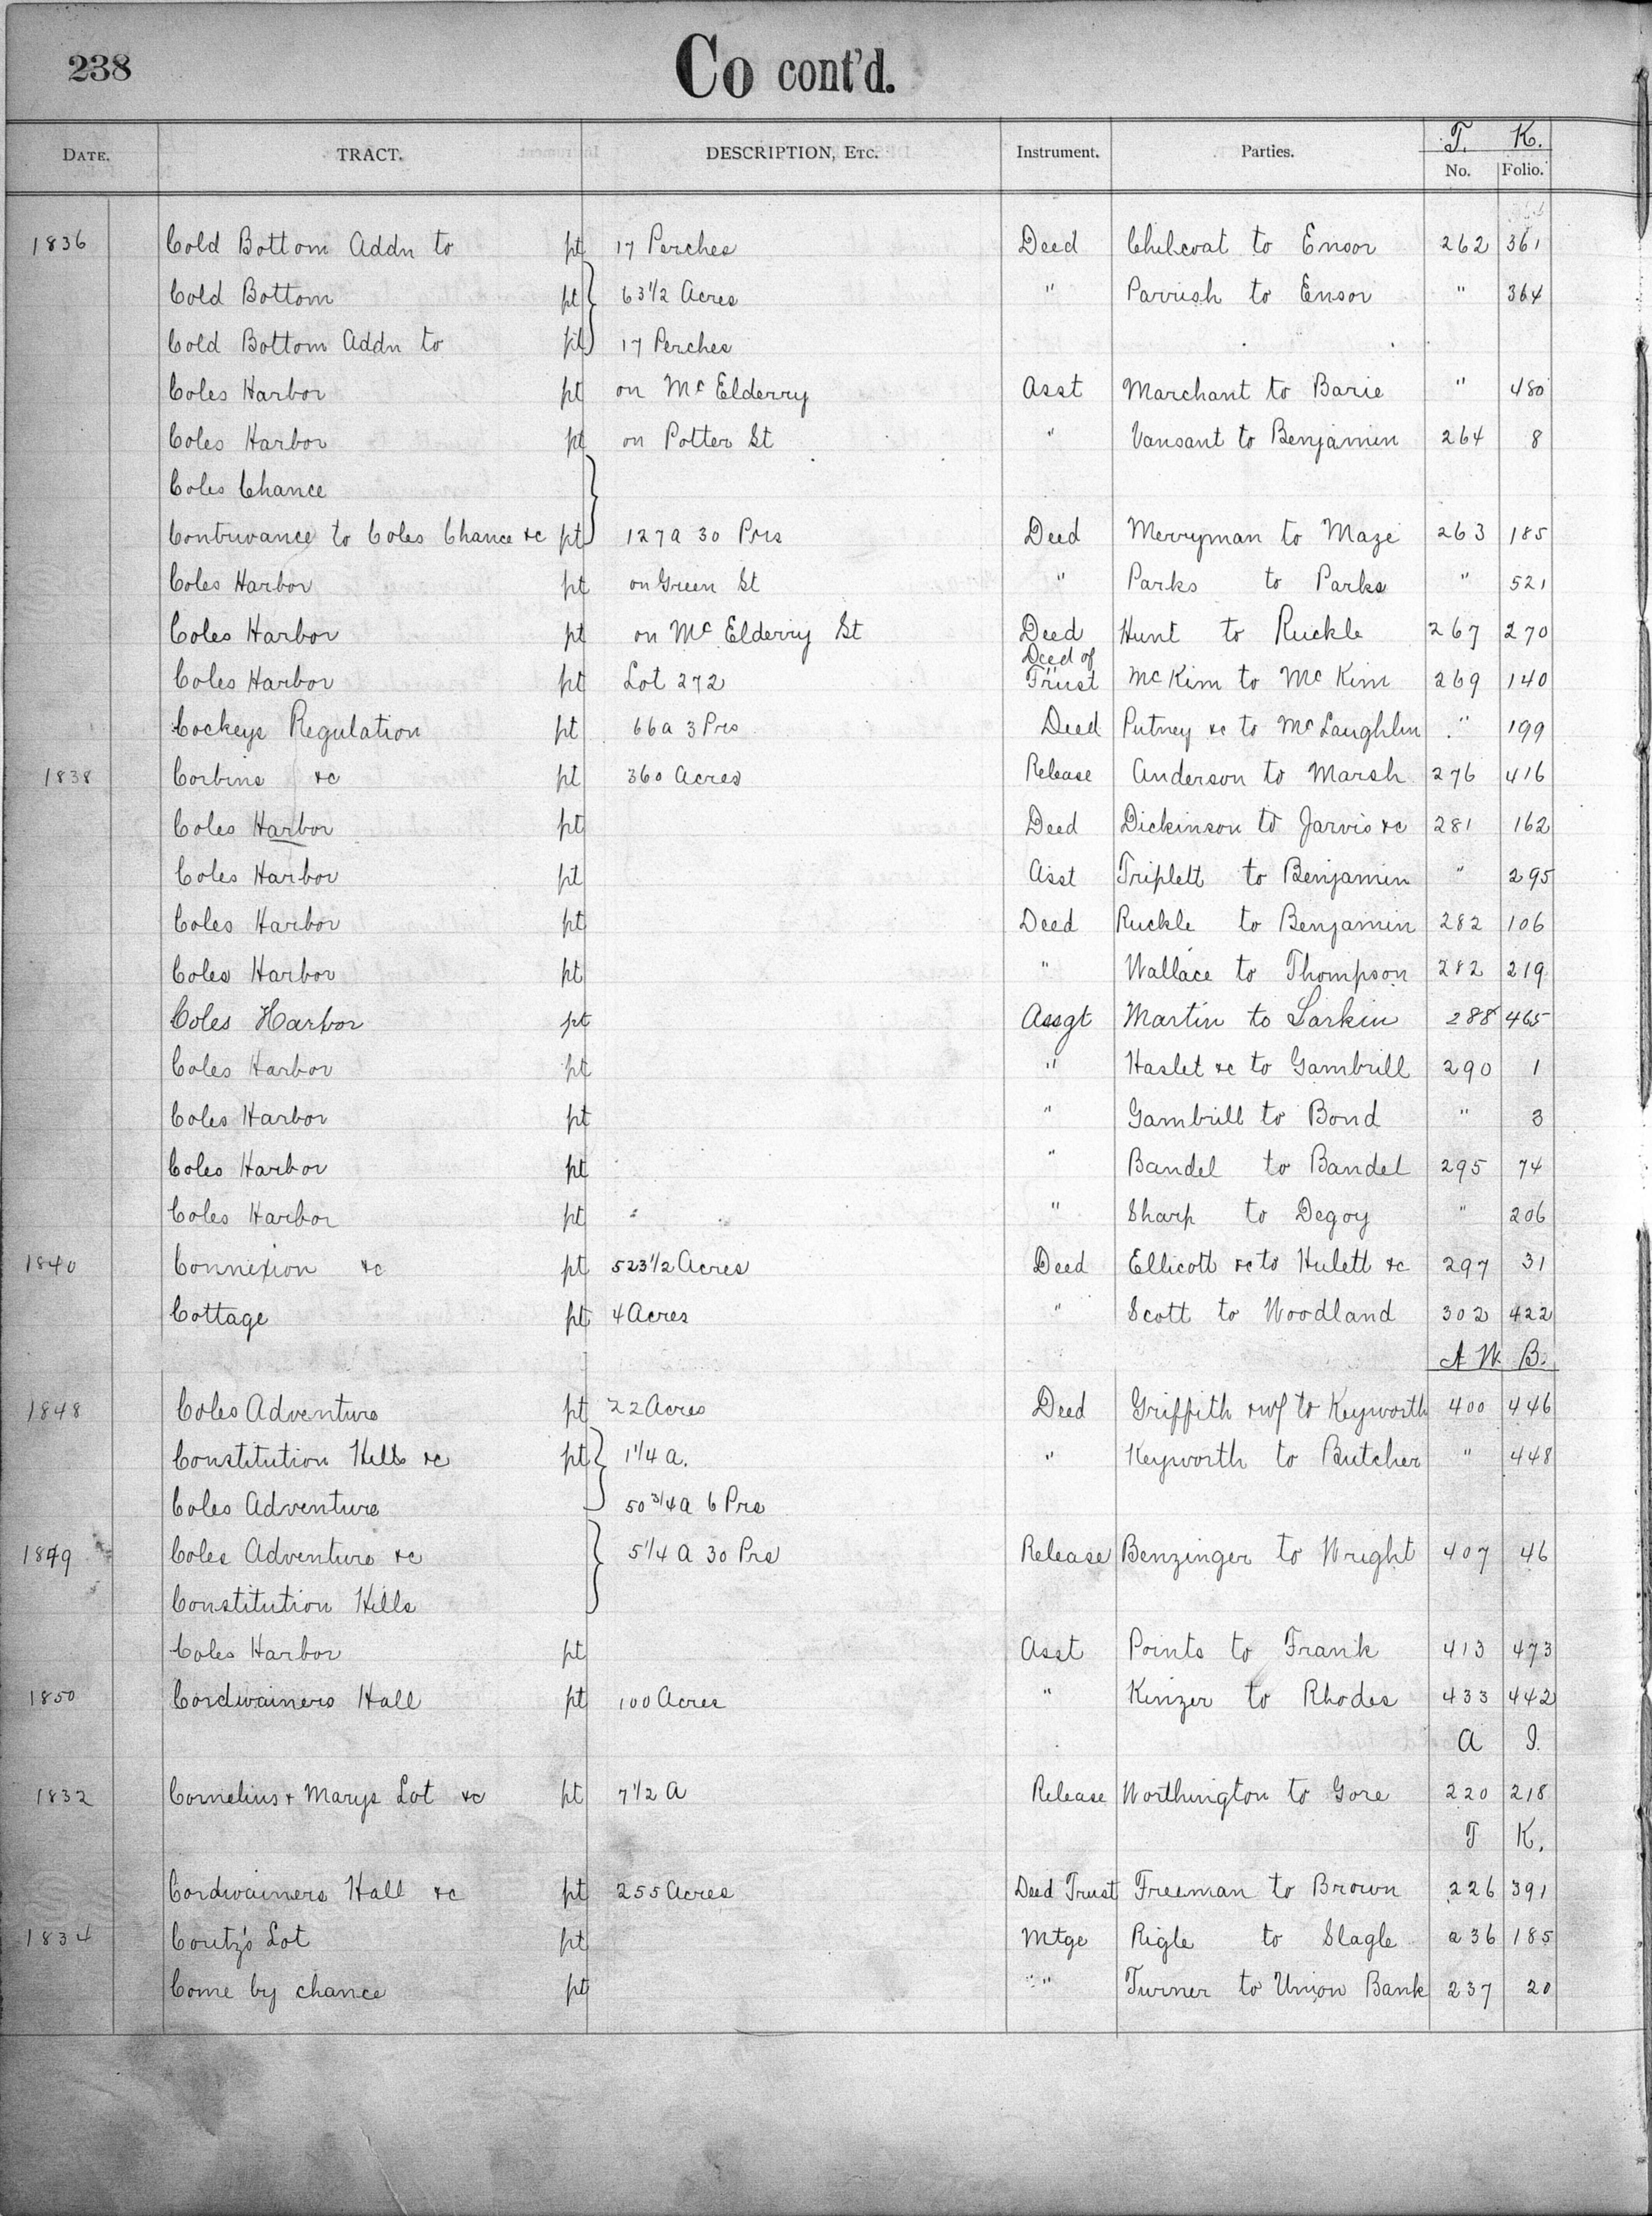 238 Co cont'd.
T. K.
DATE. TRACT. DESCRIPTION, ETC. Instrument. Parties. No. Folio.
1836 Cold Bottom Addn to pt 17 Perches Deed Chilcoat to Ensor 262 361
Cold Bottom pt 63 1/2 Acres " Parrish to Ensor " 364
Cold Bottom Addn to pt 17 Perches
Coles Harbor pt on Mc Elderry Asst Marchant to Barie " 480
Coles Harbor pt on Potter St " Vansant to Benjamin 264 8
Coles Chance
Contrivance to Coles Chance &c pt 127a 30 Prs Deed Merryman to Maze 263 185
Coles Harbor pt on Green St " Parks to Parks " 521
Coles Harbor pt on Mc Elderry St Deed Hunt to Ruckle 267 270
Coles Harbor pt Lot 272 Deed of Trust McKim to McKim 269 140
Cockeys Regulation pt 66a 3 Prs Deed Putney &c to McLaughlin " 199
1838 Corbins &c pt 360 Acres Release Anderson to Marsh 276 416
Coles Harbor pt Deed Dickinson to Jarvis &c 281 162
Coles Harbor pt Asst Triplett to Benjamin " 295
Coles Harbor pt Deed Ruckle to Benjamin 282 106
Coles Harbor pt " Wallace to Thompson 282 219
Coles Harbor pt Assgt Martin to Larkin 288 465
Coles Harbor pt " Haslet &c to Gambrill 290 1
Coles Harbor pt " Gambrill to Bond " 3
Coles Harbor pt " Bandel to Bandel 295 74
Coles Harbor pt " Sharp to Degoy " 206
1840 Connexion &c pt 523 1/2 Acres Deed Ellicott &c to Hulett &c 297 31
Cottage pt 4 Acres " Scott to Woodland 302 422
A W. B.
1848 Coles Adventure pt 22 Acres Deed Griffith & wf to Keyworth 400 446
Constitution Hills &c pt 1 1/4 a. " Keyworth to Butcher " 448
Coles Adventure 50 3/4 a 6 Prs
1849 Coles Adventure &c 5 1/4 a 30 Prs Release Benzinger to Wright 407 46
Constitution Hills
Coles Harbor pt Asst Points to Frank 413 473
1850 Cordwainers Hall pt 100 Acres " Kinzer to Rhodes 433 442
A I.
1832 Cornelius & Marys Lot &c pt 7 1/2 A Release Worthington to Gore 220 218
T K.
Cordwainers Hall &c pt 255 Acres Deed Trust Freeman to Brown 226 391
1834 Coutz's Lot pt Mtge Rigle to Slagle 236 185
Come by chance pt " Turner to Union Bank 237 20